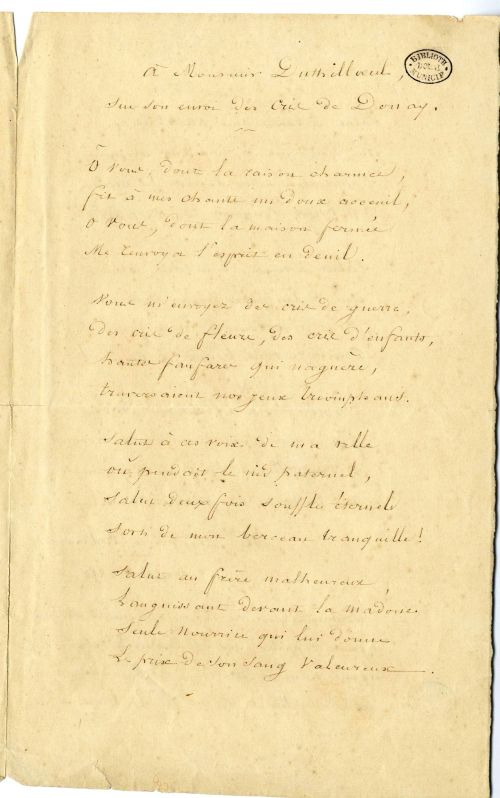 à Monsieur Duthillœul,
sur son envoi des cris de Douay.
BIBLIOTH
MUNICIP
Ô vous, dont la raison charmée,
fit à mes chants un doux acceuil,
ô vous, dont la maison fermée
Me renvoya l'esprit en deuil.
vous m'envoyez des cris de guerre,
des cris de fleurs, des cris d'enfants,
hautes fanfares qui naguère,
traversaient nos jeux triomphans.
salut à ces voix de ma ville
où pendait le nid paternel,
salut deux fois souffle éternel
sorti de mon berceau tranquille!
salut au frère malheureux
Languissant devant la madone
seule nourrice qui lui donne
Le prix de son sang valeureux.